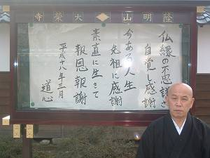 明山 大榮寺
仏縁の不思議を
自覚し感謝
今ある人生
先祖に感謝
素直に生きて
報恩報謝
平成十八年二月
道心